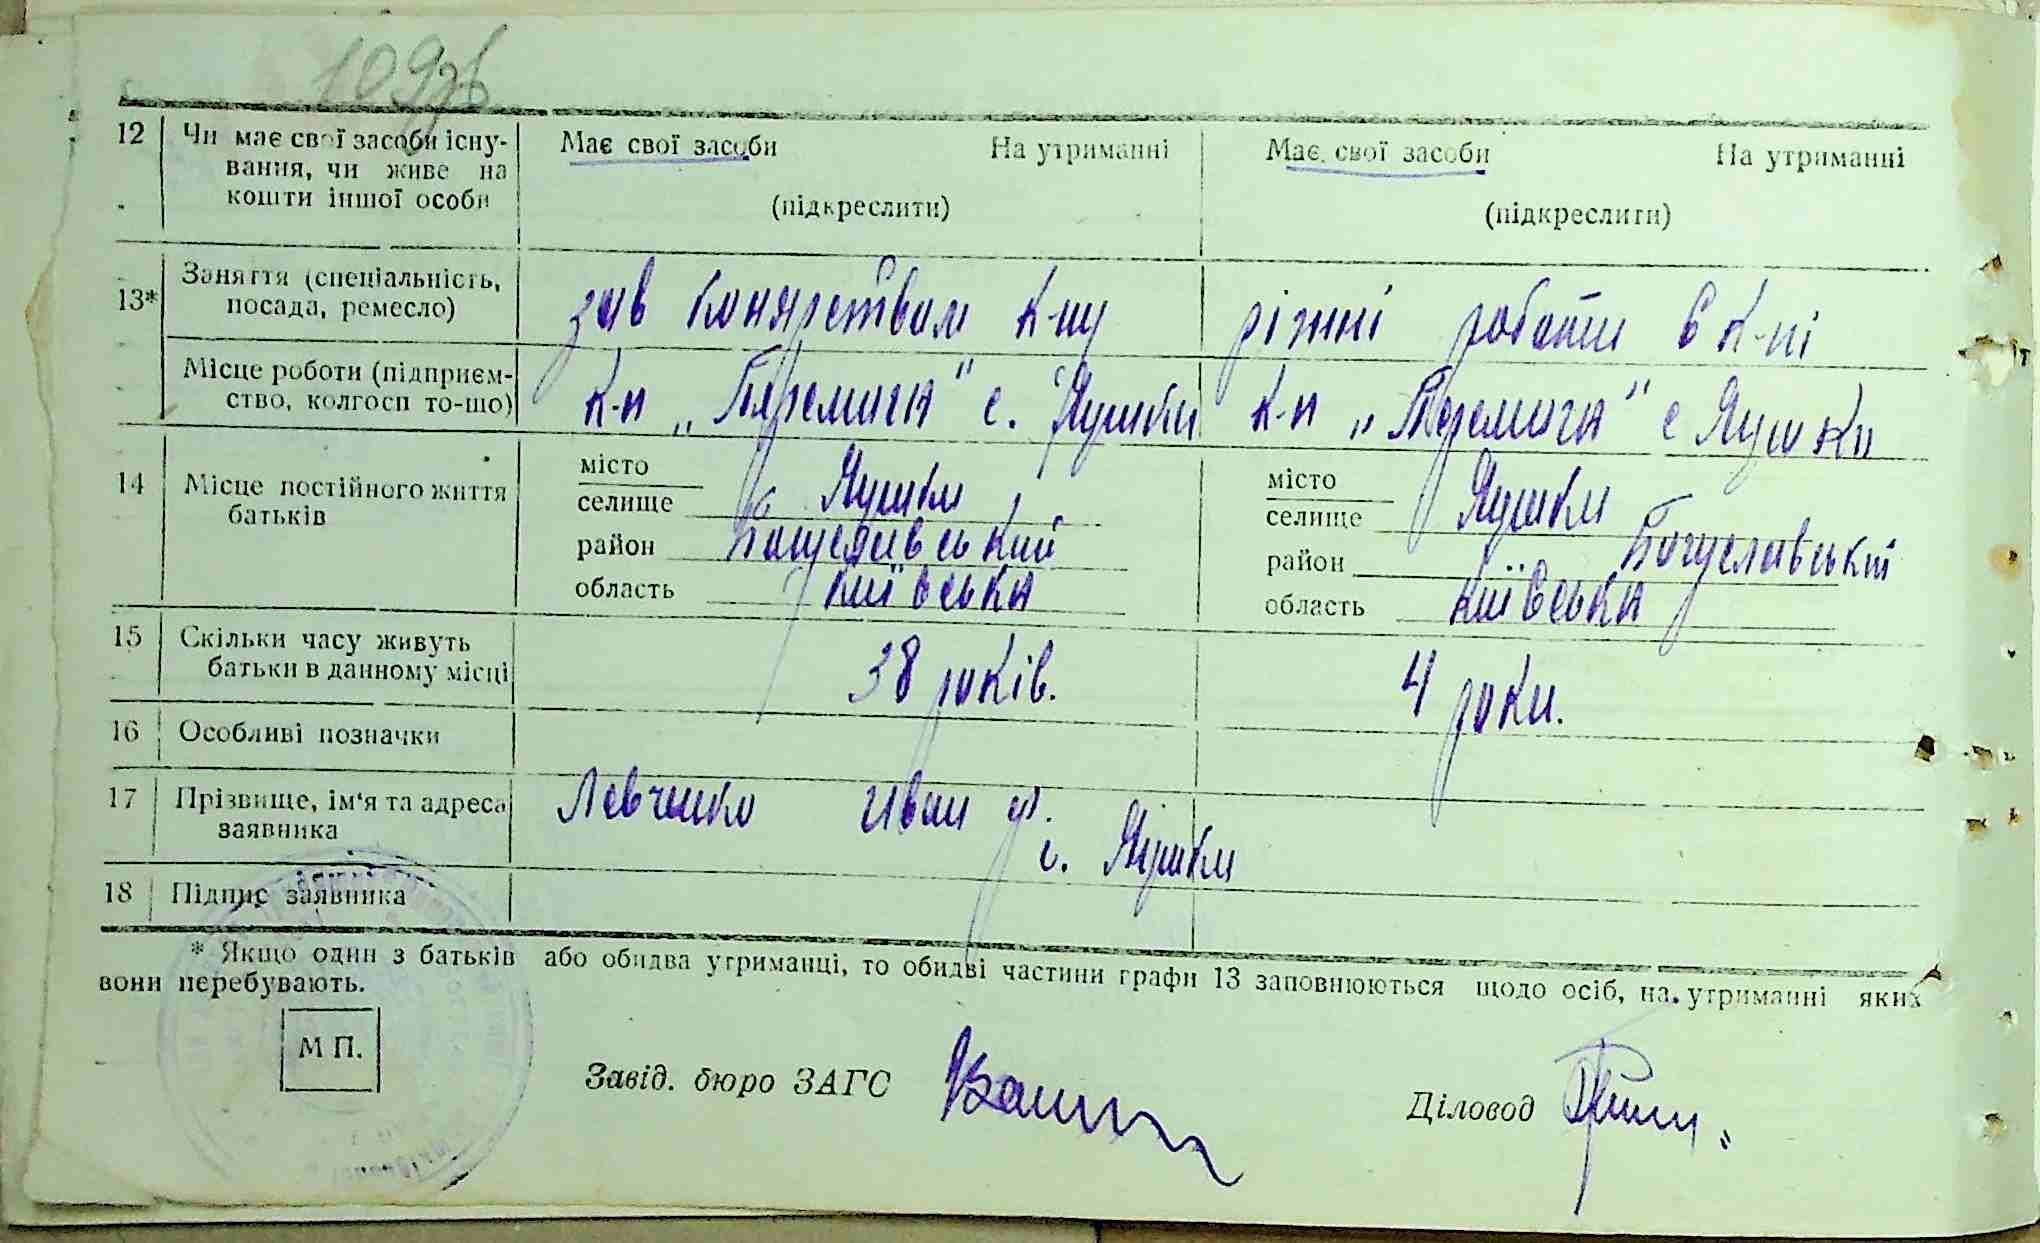 109зв
12 Чи має свої засоби існу- Має свої засоби На утриманні Має свої засоби На утриманні
вання, чи живе на
кошти іншої особи (підкреслити) (підкреслити)
13* Заняття (спеціальність, зав конярством к-пу ріжні роботи в к-пі
посада, ремесло)
Місце роботи (підприєм- к-п „Перемога" с. Яцюки к-п „Перемога" с Яцюки
ство, колгосп то-що)
14 Місце постійного життя місто місто
батьків селище с Яцюки селище Яцюки
район Богуславський район Богуславський
область Київська область Київська
15 Скільки часу живуть 38 років. 4 роки.
батьки в данному місці
16 Особливі позначки
17 Прізвище, ім'я та адреса Левченко Иван Ф.
заявника с. Яцюки
18 Підпис заявника
* Якщо один з батьків або обидва утриманці, то обидві частини графи 13 заповнюються щодо осіб, на утриманні яких
вони перебувають.
М П.
Завід. бюро ЗАГС Діловод